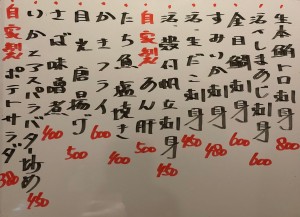 生本鮪トロ刺身 800
活〆しまあじ刺身 600
金目鯛刺身 600
すみいか刺身 480
活・生だこ刺身 450
活・貝付帆立刺身 450
自家製 あん肝 500
たち魚塩焼き 400
かきフライ 600
目光唐揚げ 500
さば味噌煮 400
いかとアスパラバター炒め 450
自家製 ポテトサラダ 380